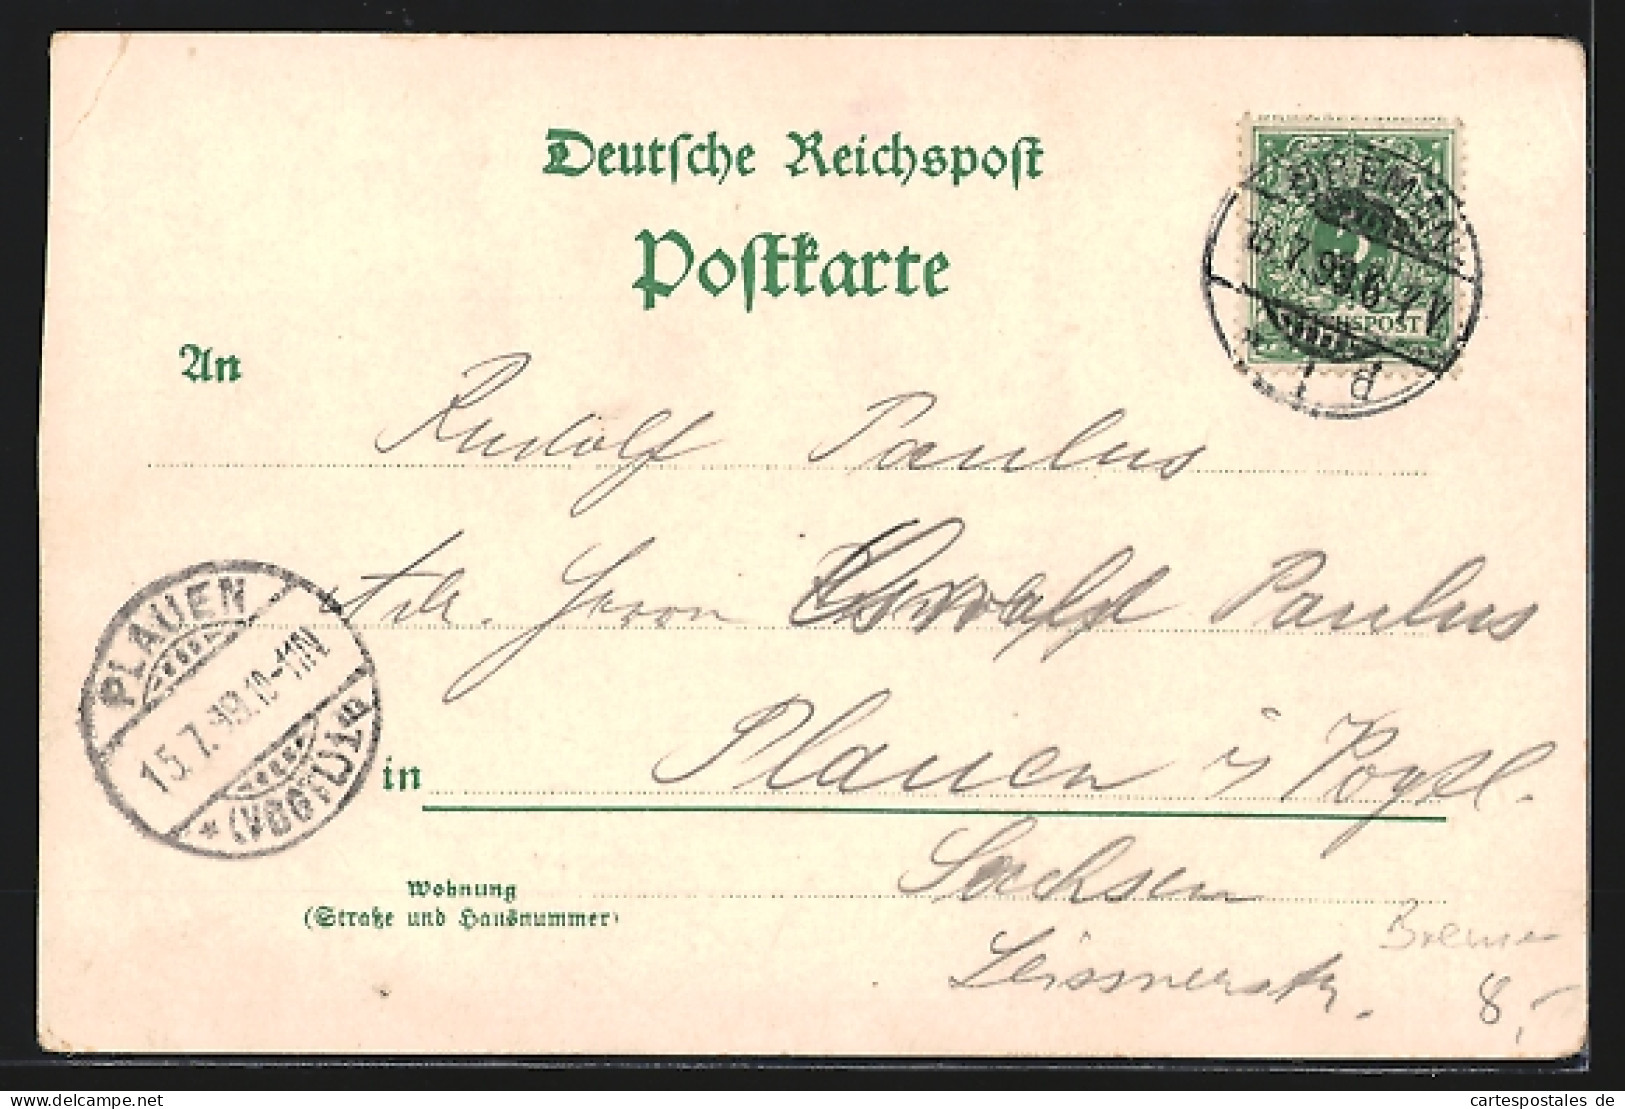 Deutsche Reichspost
Postkarte
BREMEN
7.99.6-7V.
REICHSPOST
* 1 d
An
Rudolf Paulus
Adr. Herrn Oswald Paulus
PLAUEN
15.7.99.10-11N
*(VOGTL.)1 B
in Plauen i/ Vogtl.
Wohnung Sachsen
(Straße und Hausnummer)
Bremen
8,-
www.delcampe.net
cartespostales de